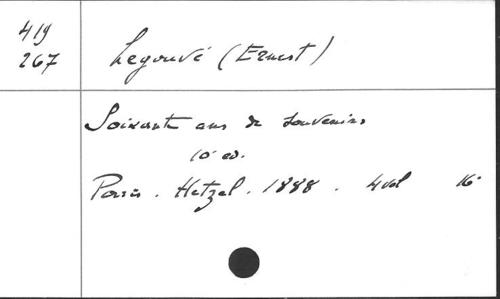 419
267
Legouvé (Ernest)
Soixante ans de souvenirs
10 ed.
Paris. Hetzel. 1888. 4 vol 16°